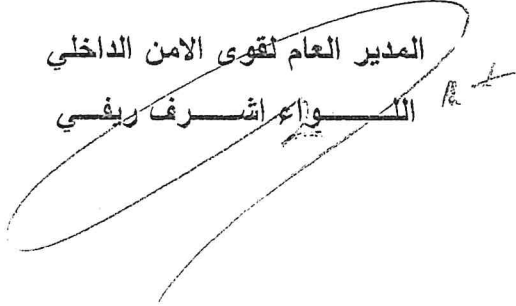 المدير العام لقوى الامن الداخلي
اللـــــواء اشـــرف ريفـــي